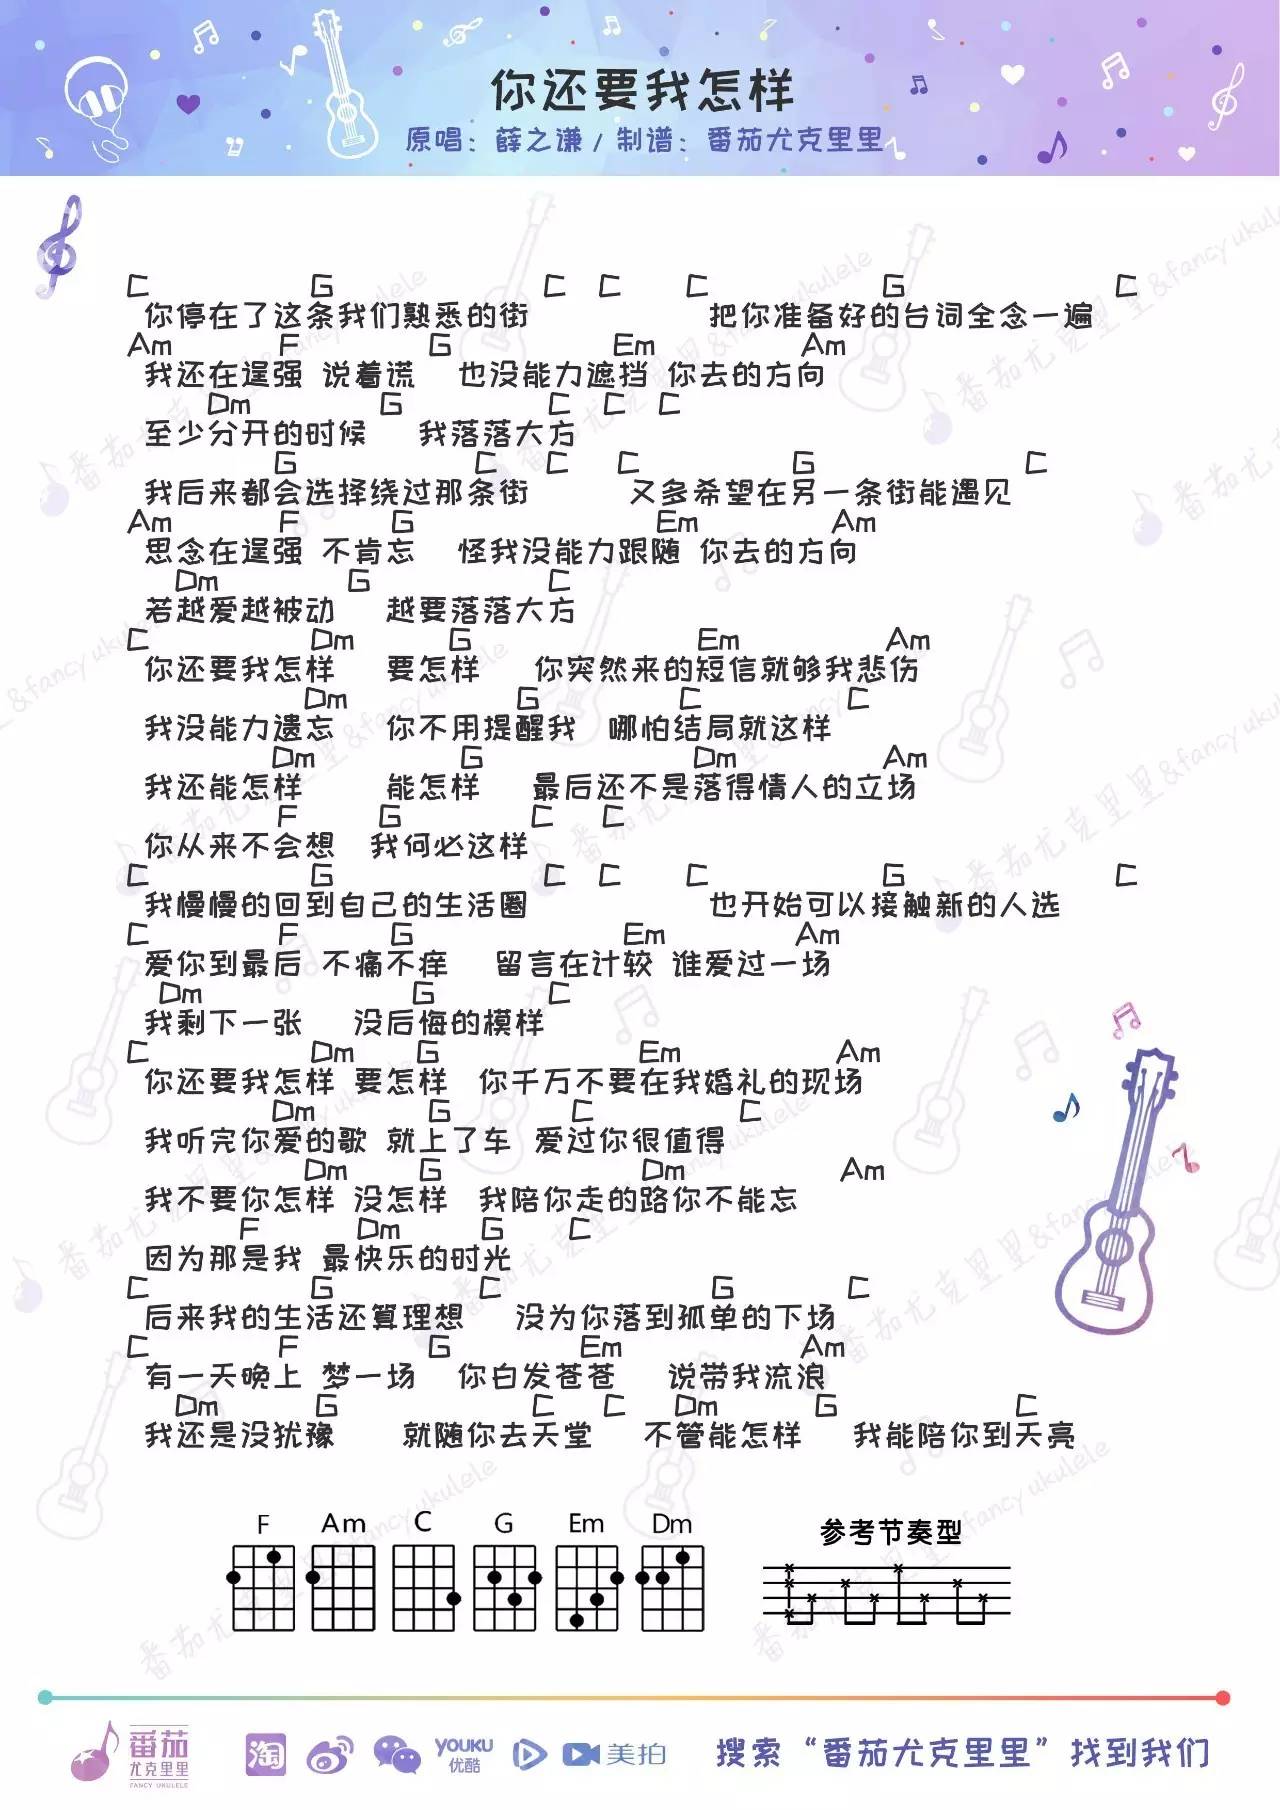 你还要我怎样
原唱：薛之谦 / 制谱：番茄尤克里里
C G C C C G C
你停在了这条我们熟悉的街 把你准备好的台词全念一遍
Am F G Em Am
我还在逞强 说着谎 也没能力遮挡 你去的方向
Dm G C C C
至少分开的时候 我落落大方
G C C C G C
我后来都会选择绕过那条街 又多希望在另一条街能遇见
Am F G Em Am
思念在逞强 不肯忘 怪我没能力跟随 你去的方向
Dm G C
若越爱越被动 越要落落大方
C Dm G Em Am
你还要我怎样 要怎样 你突然来的短信就够我悲伤
Dm G C C
我没能力遗忘 你不用提醒我 哪怕结局就这样
Dm G Dm Am
我还能怎样 能怎样 最后还不是落得情人的立场
F G C C
你从来不会想 我何必这样
C G C C C G C
我慢慢的回到自己的生活圈 也开始可以接触新的人选
C F G Em Am
爱你到最后 不痛不痒 留言在计较 谁爱过一场
Dm G C
我剩下一张 没后悔的模样
C Dm G Em Am
你还要我怎样 要怎样 你千万不要在我婚礼的现场
Dm G C C
我听完你爱的歌 就上了车 爱过你很值得
Dm G Dm Am
我不要你怎样 没怎样 我陪你走的路你不能忘
F Dm G C
因为那是我 最快乐的时光
C G C G C
后来我的生活还算理想 没为你落到孤单的下场
C F G Em Am
有一天晚上 梦一场 你白发苍苍 说带我流浪
Dm G C C Dm G C
我还是没犹豫 就随你去天堂 不管能怎样 我能陪你到天亮
F Am C G Em Dm
参考节奏型
番茄
尤克里里
FANCY UKULELE
淘
YOUKU
优酷
美拍
搜索“番茄尤克里里”找到我们
番茄尤克里里&fancy ukulele